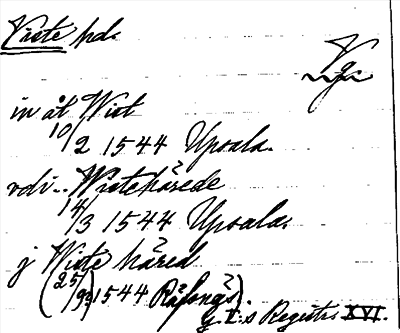 Viste hd.
Vg.
in åt Wist
10/2 1544 Upsala.
vdi.. Wistehärede
14/3 1544 Upsala.
j Wiste häred
(25/9 1544
G. I:s Registr. XVI.